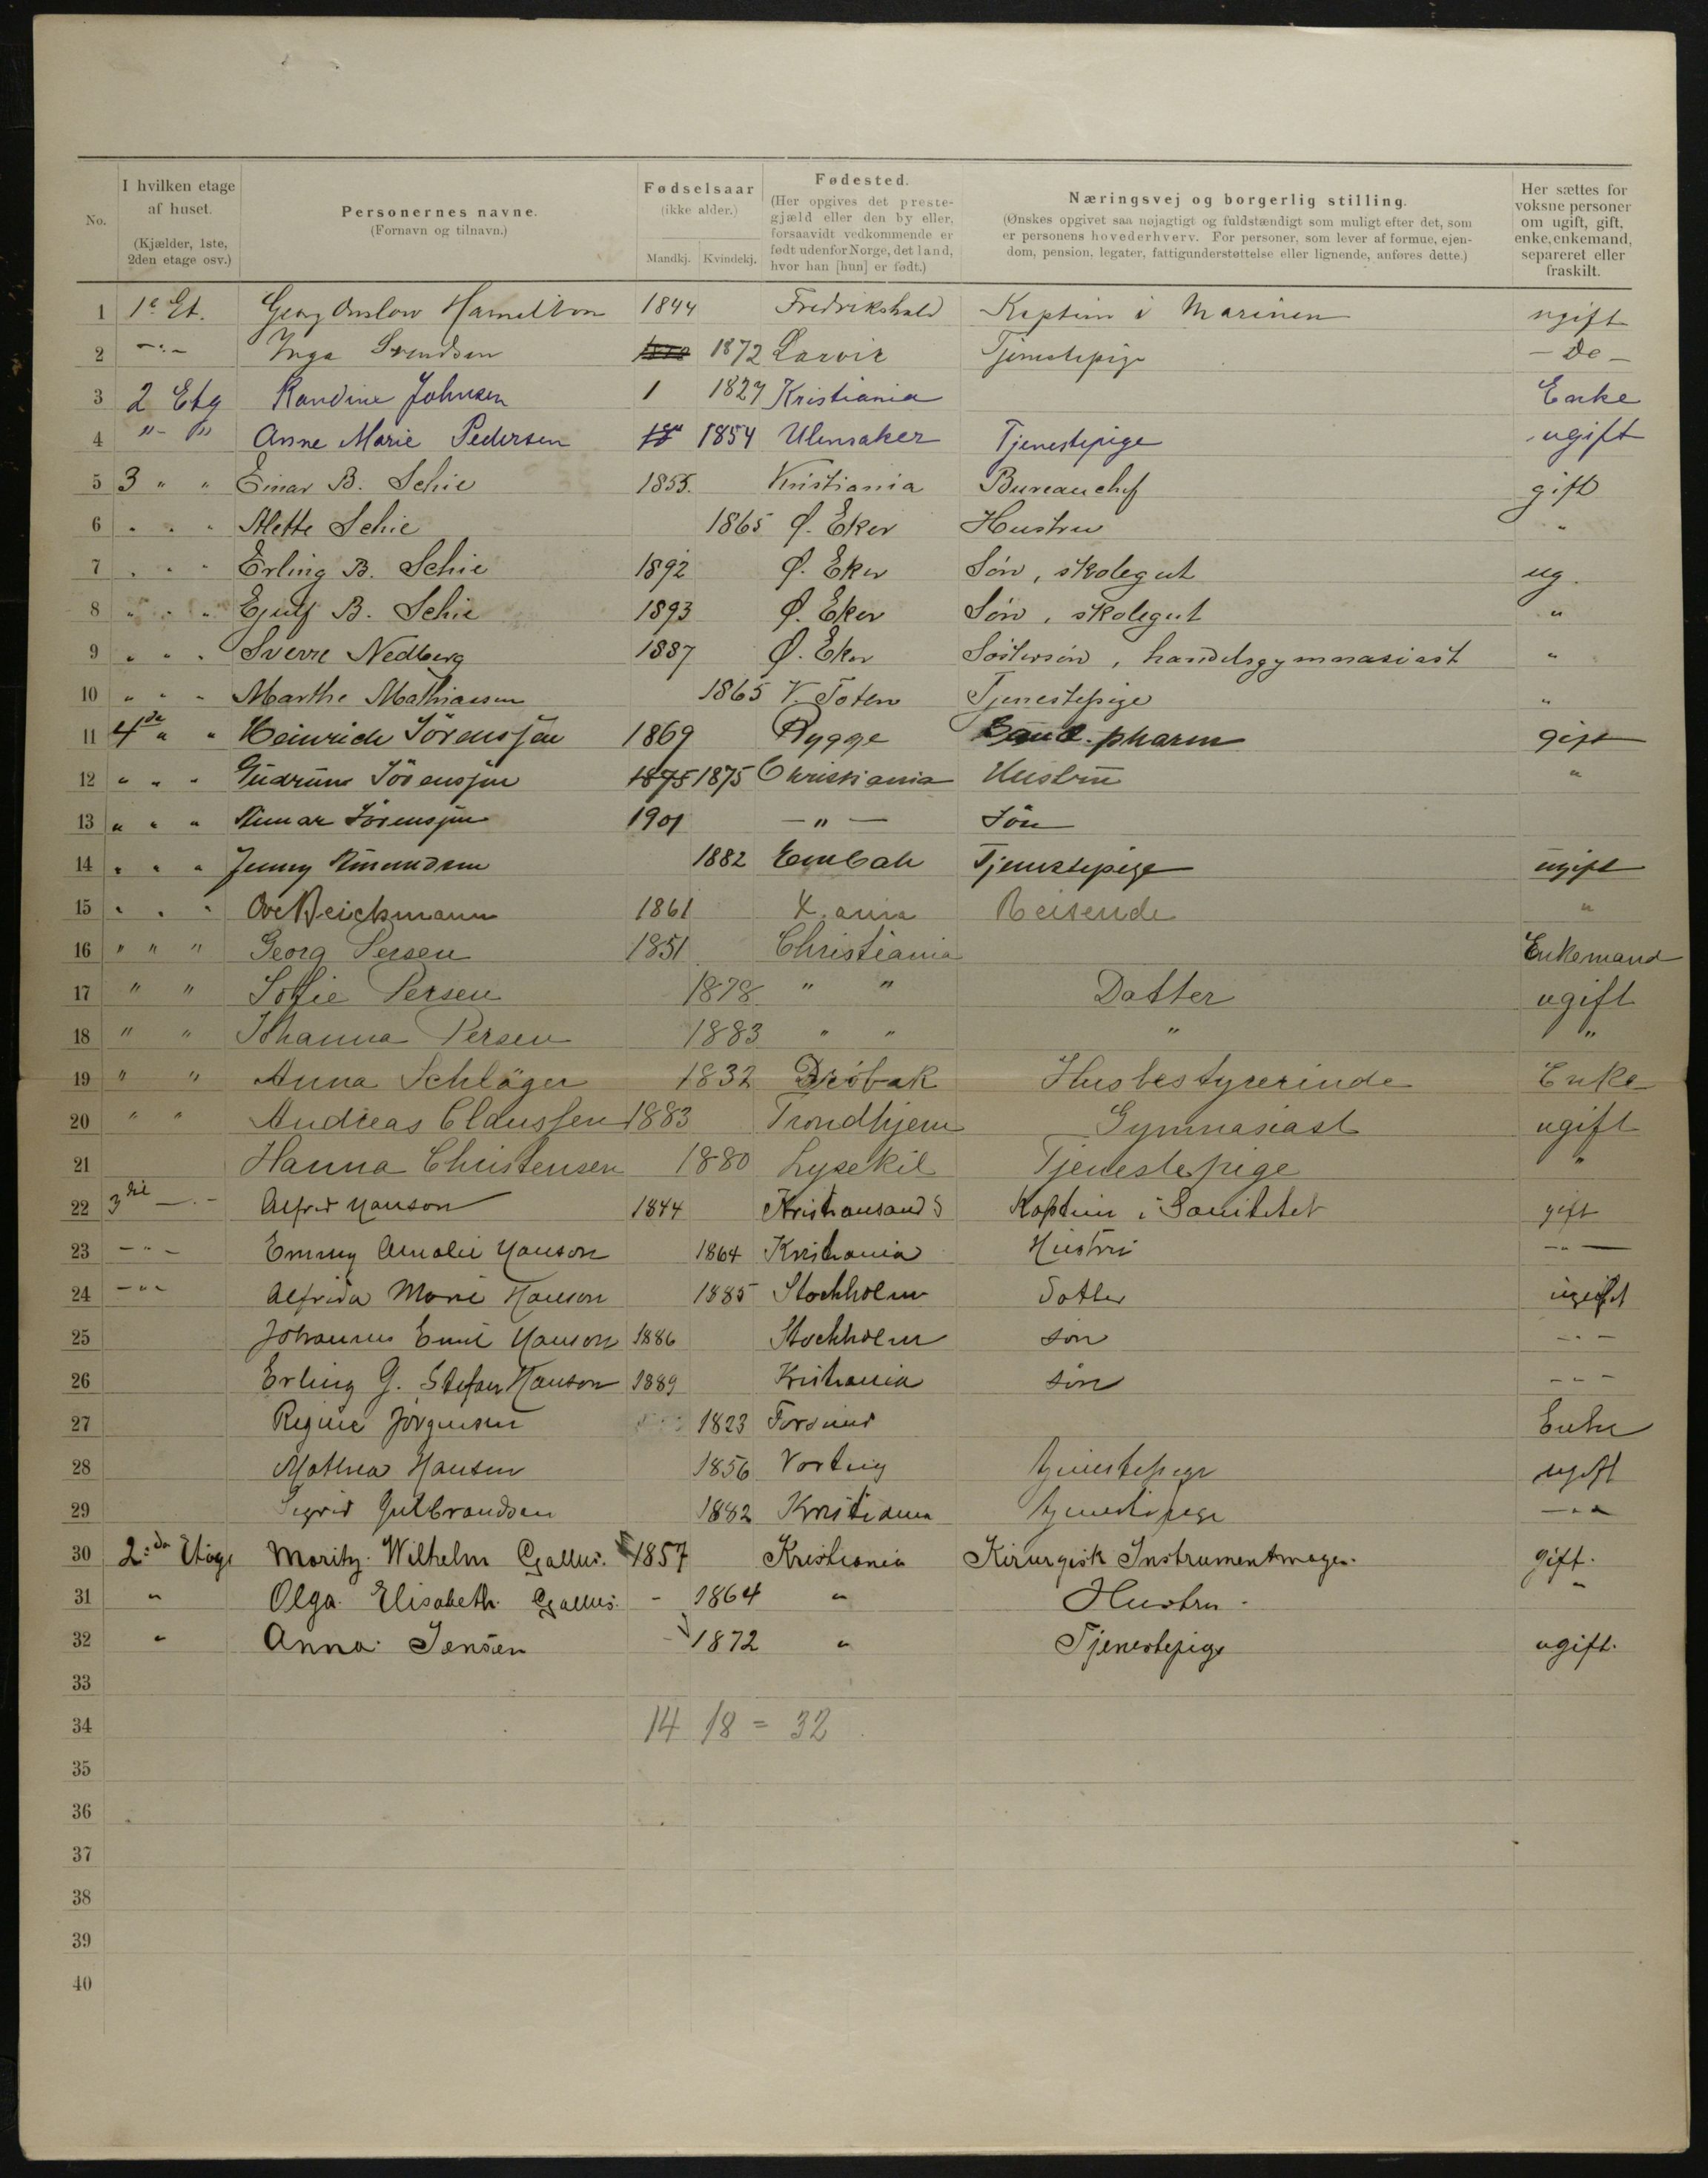 No.
I hvilken etage af huset.
(Kjælder, 1ste, 2den etage osv.)
Personernes navne.
(Fornavn og tilnavn.)
Fødselsaar
(ikke alder.)
Mandkj. Kvindekj.
Fødested.
(Her opgives det preste-
gjæld eller den by eller,
forsaavidt vedkommende er
født udenfor Norge, det land,
hvor han [hun] er født.)
Næringsvej og borgerlig stilling.
(Ønskes opgivet saa nøjagtigt og fuldstændigt som muligt efter det, som
er personens hovederhverv. For personer, som lever af formue, ejen-
dom, pension, legater, fattigunderstøttelse eller lignende, anføres dette.)
Her sættes for
voksne personer
om ugift, gift,
enke, enkemand,
separeret eller
fraskilt.
1 1e Et. Georg Onslow Hamilton 1844 Fredrikshald Kaptein i Marinen ugift
2 -"- Inga Svendsen 1872 Larvik Tjenestepige - Do -
3 2 Etg Randine Johnsen 1 1827 Kristiania Enke
4 " - " Anne Marie Pedersen 1854 Ulensaker Tjenestepige ugift
5 3 " " Einar B. Schie 1855. Kristiania Bureauchef gift
6 " " " Mette Schie 1865 Ø. Eker Hustru "
7 " " " Erling B. Schie 1892 Ø. Eker Søn, skolegut ug.
8 " " " Ejulf B. Schie 1893 Ø. Eker Søn, skolegut "
9 " " " Sverre Nedberg 1887 Ø. Eker Søstersøn, handelsgymnasiast "
10 " " " Marthe Mathiassen 1865 V. Toten Tjenestepige "
11 4de " " Heinrich Sörenssen 1869 Rygge Cand. pharm gift
12 " " " Gudrun Sörenssen 1875 1875 Christiania Hustru "
13 " " " Sörenssen 1901 - " - Sön
14 " " " Jenny Amundsen 1882 Tjenestepige ugift
15 " " " Ove Beichmann 1861 X.ania Reisende "
16 " " " Georg Persen 1851 Christiania Enkemand
17 " " Sofie Persen 1878 " " Datter ugift
18 " " Johanna Persen 1883 " " " "
19 " " Anna Schläger 1832 Drøbak Husbestyrerinde Enke
20 " " Andreas Claussen 1883 Trondhjem Gymnasiast ugift
21 Hanna Christensen 1880 Lysekil Tjenestepige "
22 3die - " - Alfred Hanson 1844 Kristiansand S Kaptein i Sanitetet gift
23 - " - Emmy Amalie Hanson 1864 Kristiania Hustru - " -
24 - " - Alfrida Marie Hanson 1885 Stockholm Datter ugift
25 Johannes Emil Hanson 1886 Stockholm søn - " -
26 Erling G. Stefan Hanson 1889 Kristiania søn - " -
27 Regine Jörgensen 1823 Enke
28 Mathea Hansen 1856 Tjenestepige ugift
29 Sigrid Gulbrandsen 1882 Kristiania Tjenestepige - " -
30 2:den Etage Moritz Wilhelm Gallus. 1857 Kristiania Kirurgisk Instrumentmager. gift.
31 " Olga Elisabeth Gallus. - 1864 " Hustru. "
32 " Anna Jensen - 1872 " Tjenestepige ugift.
33
34 14 18 = 32
35
36
37
38
39
40